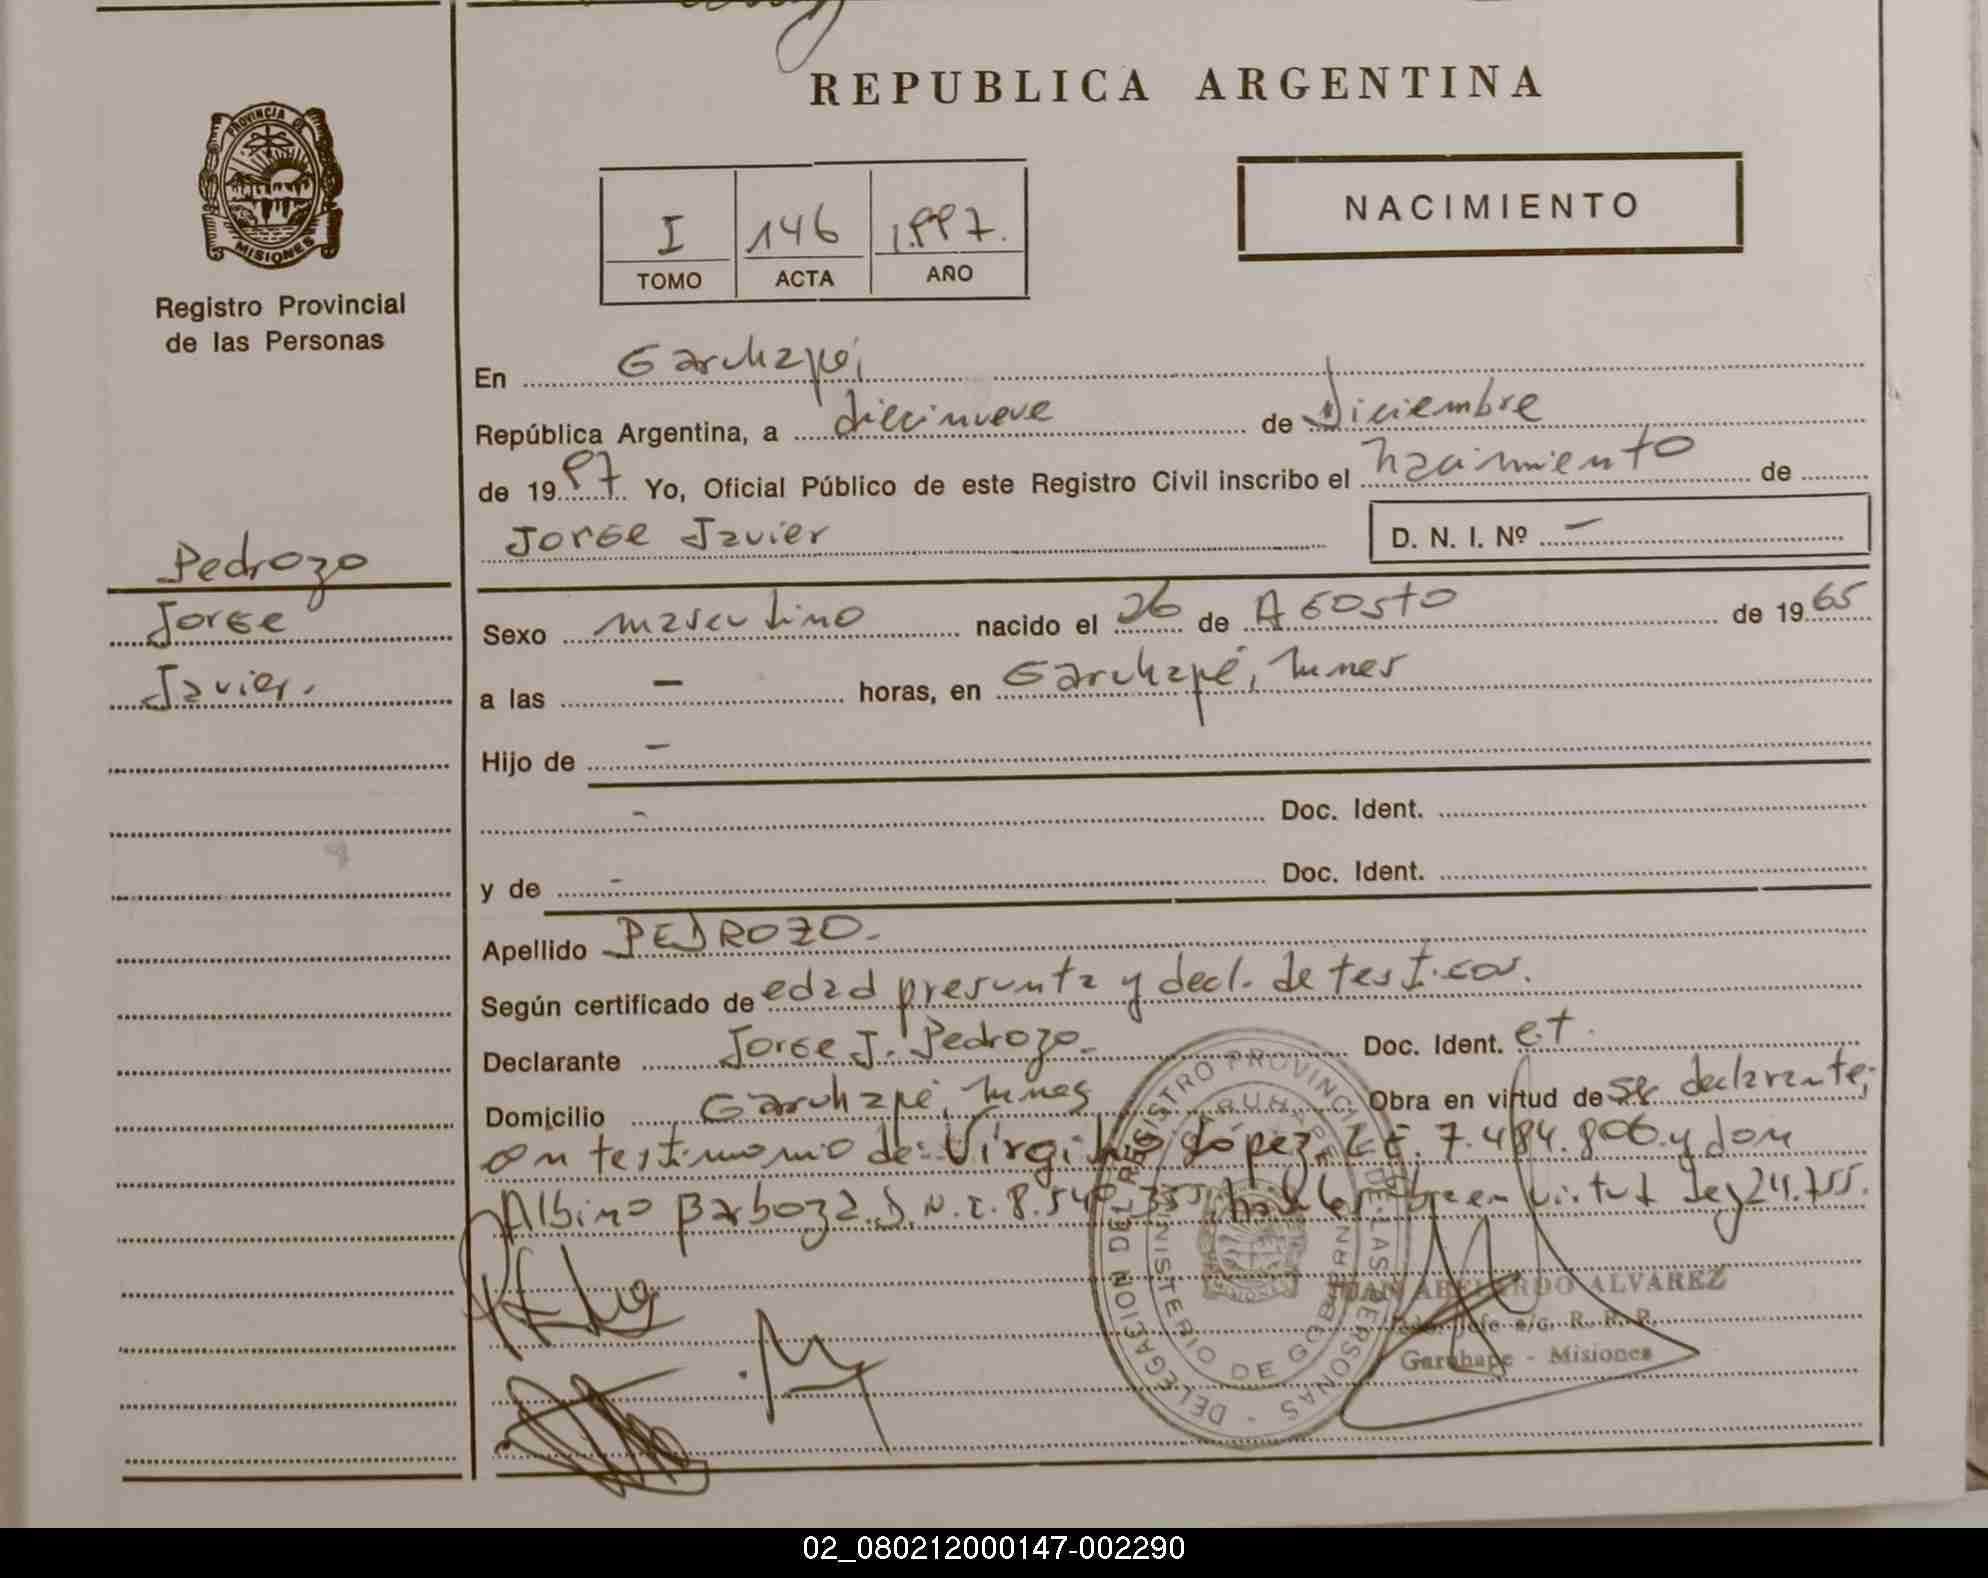 REPUBLICA ARGENTINA
PROVINCIA DE
MISIONES
Registro Provincial
de las Personas
I 146 1.997.
TOMO ACTA AÑO
NACIMIENTO
En Garuhapé,
República Argentina, a diecinueve de Diciembre
de 1997 Yo, Oficial Público de este Registro Civil inscribo el nacimiento de
Jorge Javier
D. N. I. Nº –
Pedrozo
Jorge
Javier.
Sexo masculino nacido el 26 de Agosto de 1965
a las – horas, en Garuhapé, Mnes
Hijo de –
– Doc. Ident.
y de – Doc. Ident.
Apellido PEDROZO.-
Según certificado de edad presunta y decl. de testigos.
Declarante Jorge J. Pedrozo.- Doc. Ident. e.t.
Domicilio Garuhapé, Mnes Obra en virtud de ser declarante,
on testimonio de: Virgilio López, L.E. 7.484.806 y don
Albino Barboza. D.N.I. 8.540.355, en virtud ley 24.755.
DELEGACION DEL REGISTRO PROVINCIAL DE LAS PERSONAS -
GARUHAPE
MINISTERIO DE GOBIERNO
JUAN ABELARDO ALVAREZ
Jefe a/c. R. P. P.
Garuhape - Misiones
02_080212000147-002290